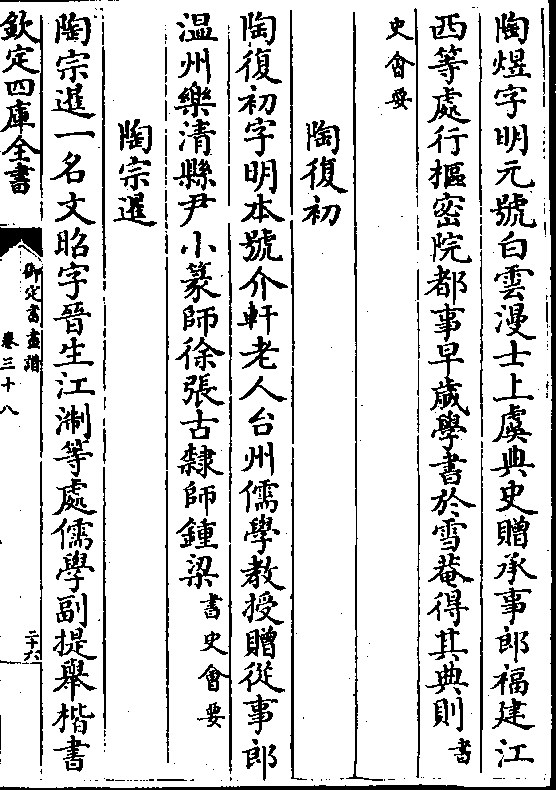 陶煜字明元號白雲漫士上虞典史贈承事郎福建江
西等處行樞密院都事早歲學書於雪菴得其典則書
史會要
陶復初
陶復初字明本號介軒老人台州儒學教授贈從事郎
温州樂清縣尹小篆師徐張古隸師鍾梁書史會要
陶宗暹
陶宗暹一名文昭字晉生江淛等處儒學副提舉楷書
欽定四庫全書
御定書畫譜
卷三十八
二十六